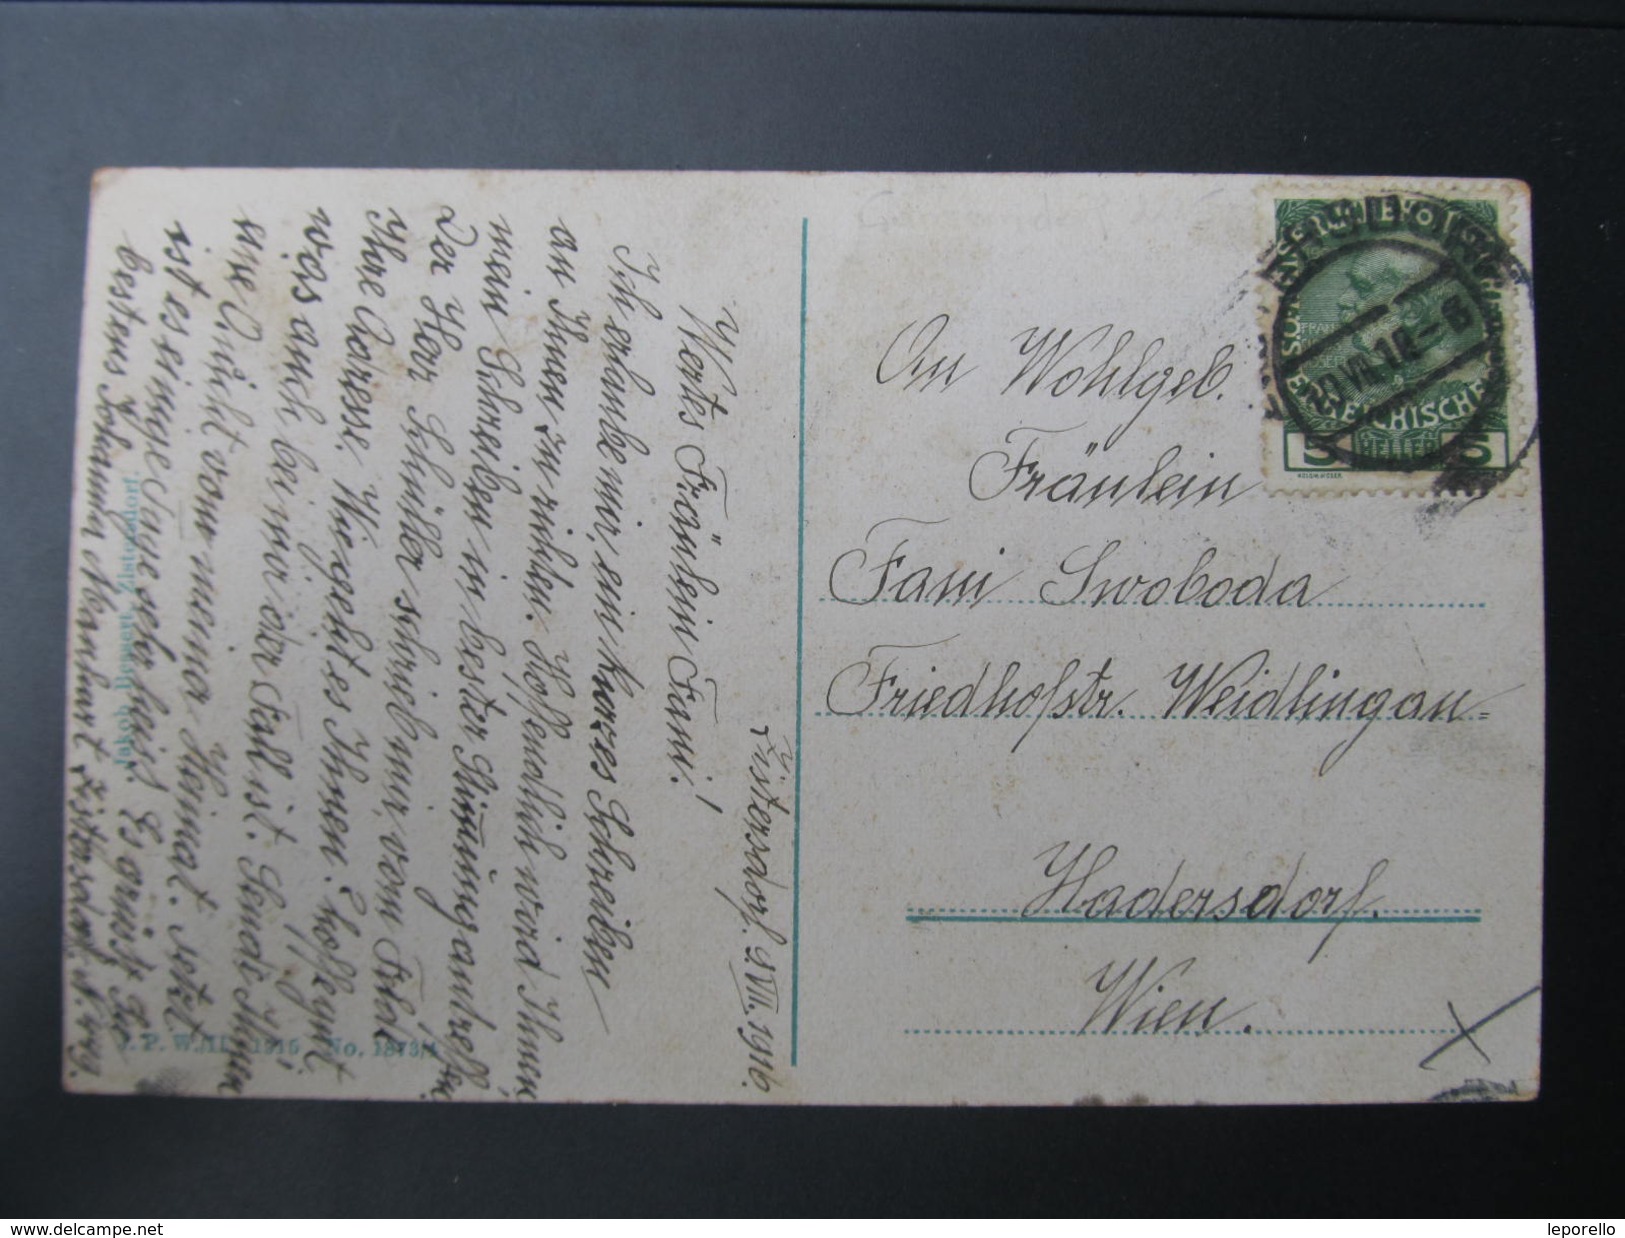 Zistersdorf. 9. VII. 1916.
Wertes Fräulein Fani!
Ich erlaube mir, ein kurzes Schreiben
an Ihnen zu richten. Hoffendlich wird Ihnen,
mein Schreiben in bester Stimmung antreffen
Der Herr Schüller schrieb mir, vom Feld
Ihre Adresse. Wie geht es Ihnen. hoffe gut,
was auch bei mir der Fall ist. Sende Ihnen
eine Ansicht von meina Heimat. jetzt
ist es einige Tage sehr heiss. Es grüsst Sie
bestens Johann Zistersdorf. N.
Jakob Zistersdorf.
P. W./II. 1915 No. 1873/4
An Wohlgeb.
Fräulein
Fani Swoboda
Friedhofstr. Weidlingau=
Hadersdorf.
Wien.
ÖSTERREICHISCHE
5 HELLER 5
VII. 16 - 6
www.delcampe.net
leporello